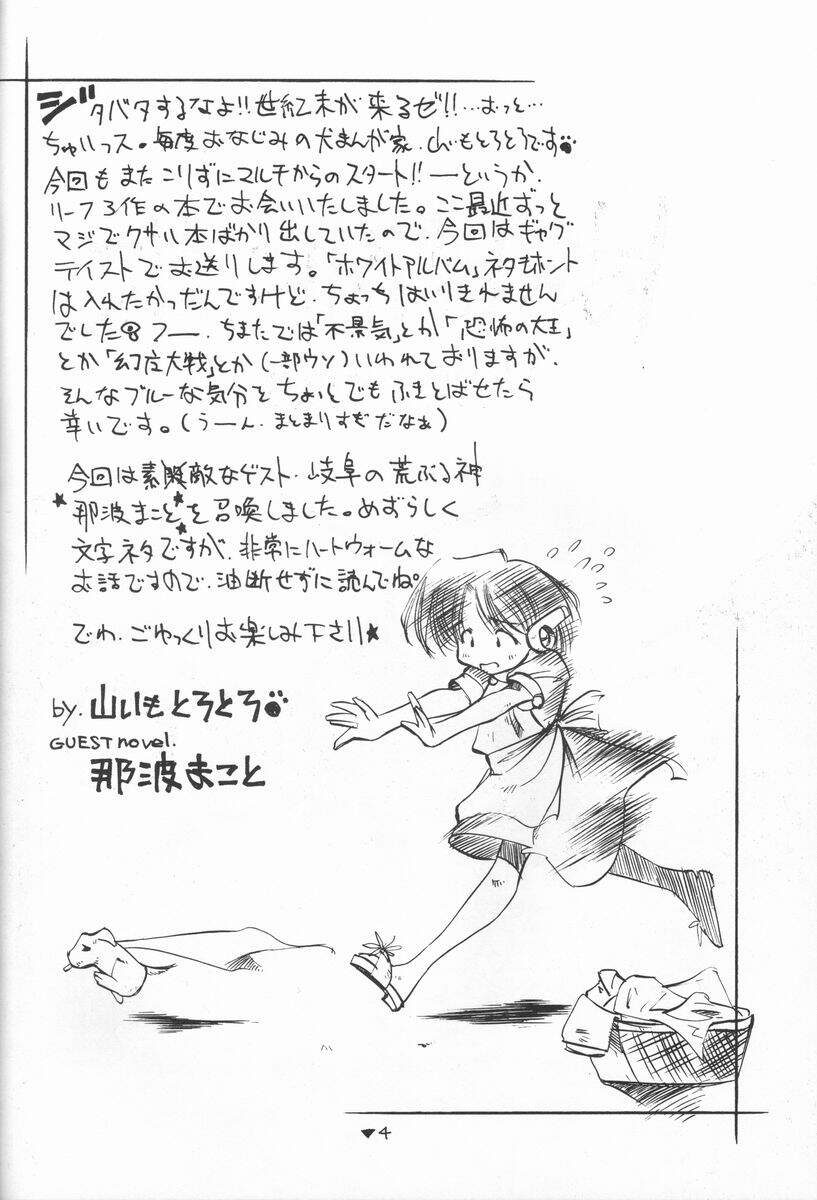 ジタバタするなよ!!世紀末が来るゼ!!…おっと…
ちゅいっス。毎度おなじみの犬まんが家、山いもとろとろです
今回もまたこりずにマルチからのスタート!!―というか、
リーフ3作の本でお会いいたしました。ここ最近ずっと
マジでクサい本ばかり出していたので、今回はギャグ
テイストでお送りします。「ホワイトアルバム」ネタもホント
は入れたかっだんですけど、ちょっちはいりきれません
でした フー、ちまたでは「不景気」とか「恐怖の大王」
とか「幻庄大戦」とか(一部ウソ)いわれておりますが、
そんなブルーな気分をちょいとでもふきとばせたら
幸いです。(うーん、まとまりすぎだなぁ)
今回は素敵なゲスト、岐阜の荒ぶる神
★那波まこと★を召喚しました。めずらしく
文字ネタですが、非常にハートウォームな
お話ですので、油断せずに読んでね。
でわ、ごゆっくりお楽しみ下さい★
by.山いもとろとろ
GUEST novel.
那波まこと
▼4